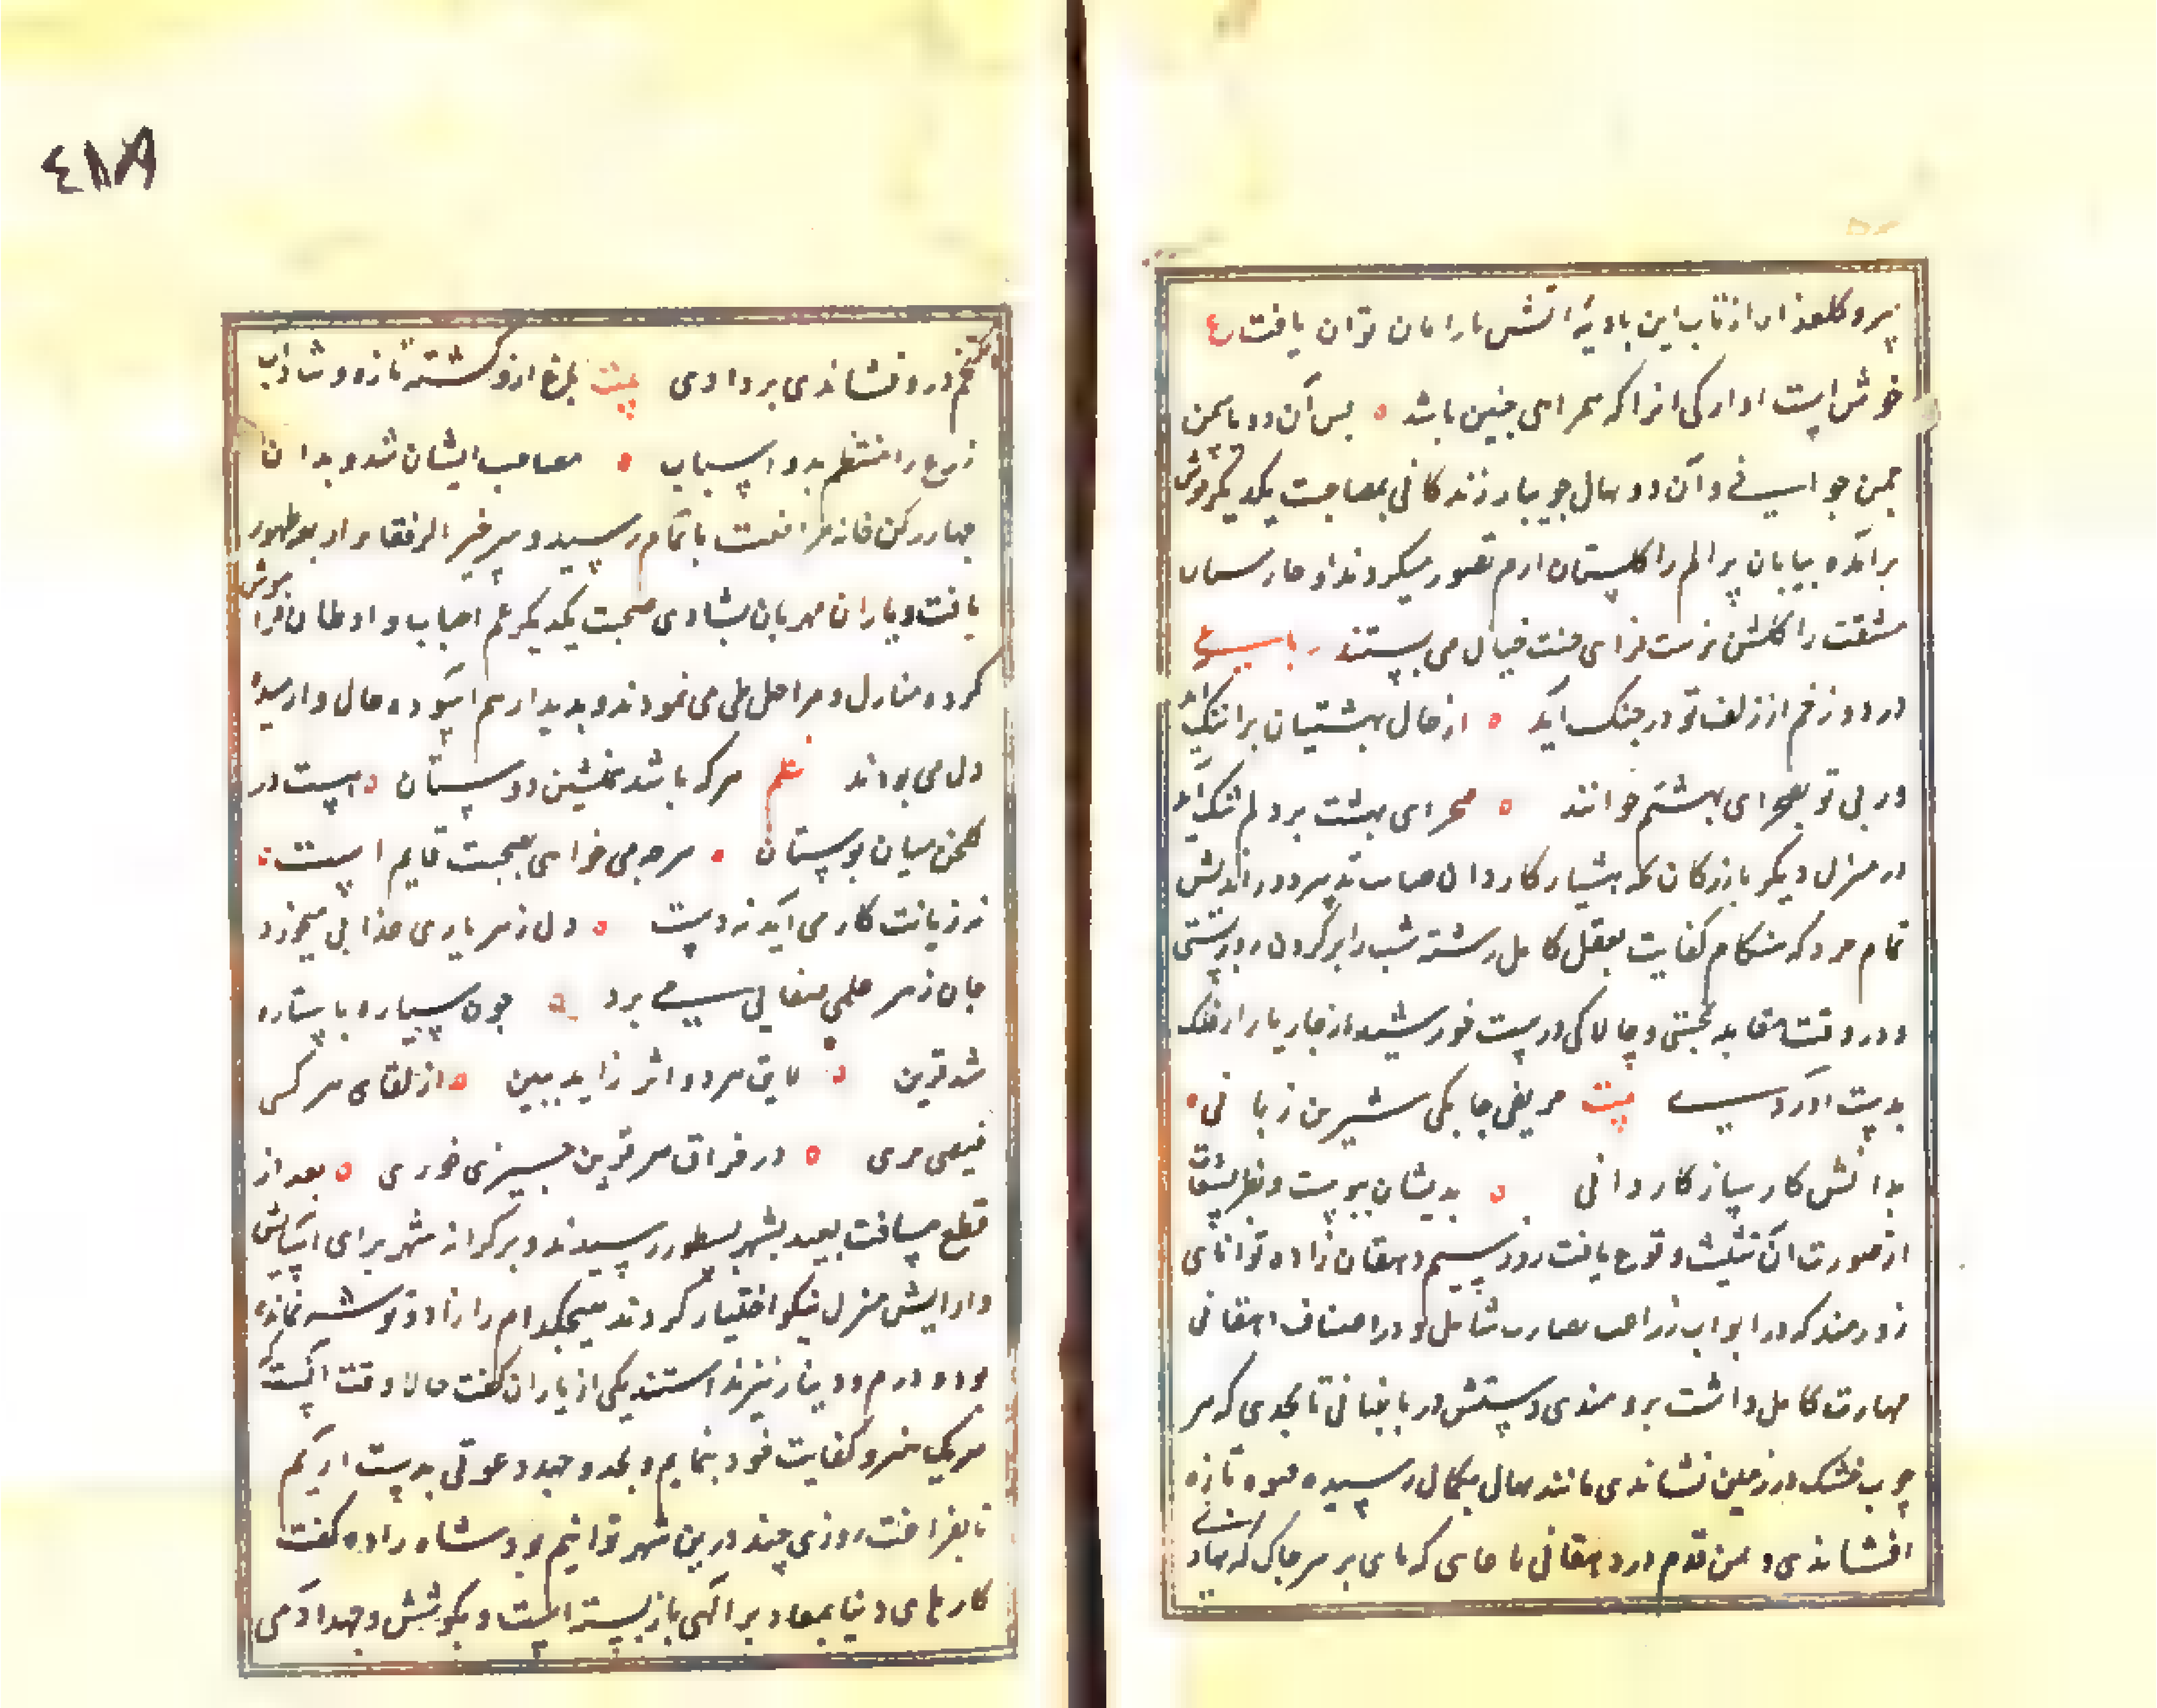 خوش است اوارکی انرا که همراهی چنین باشد پس آن دو یاسمن
چمن جوانی و آن دو نهال جویبار زندکانی بمصاحبت یکدیکر خوش
برآمده بیابان پر الم را کلستان ارم تصور میکردند و خارستان
مشقت را کلشن نزهت فزای جنت خیال می بستند رباعی
در دوزخم ار زلف تو در چنک آید از حال بهشتیان مرا ننک آید
ور بی تو بصحرای بهشتم خوانند صحرای بهشت بر دلم تنک آید
در منزل دیکر بازرکان بچه هشیار کاردان صاحب تدبیر دوراندیش
تمام خرد که هنکام کفایت بعقل کامل رشته شب را بر کردن روز بستی
و در وقت معامله بچستی و چالاکی درست خورشید از چار بازار فلک
بدست آوردی بیت حریفی چابکی شیرین زبانی
بدانش کار ساز کاردانی بدیشان پیوست و نظر
از صورت آن تثلیث وقوع یافت روز سیم دهقان زاده توانای
زورمند که در ابواب زراعت بصارت شامل و در اصناف دهقانی
مهارت کامل داشت برومندی دستش در باغبانی تا بحدی که هر
چوب خشک در زمین نشاندی مانند نهال بکمال رسیده میوه تازه
افشاندی و یمن قدم در دهقانی تا جای که پای بر سر خاک که نهادی
تخم درو فشاندی بر دادی بیت باغ ازو کشته تازه و شاداب
زرع را منتظم بدو اسباب مصاحب ایشان شد و بدان
چهار رکن خانه مرافقت باتمام رسید و سر خیر الرفقاء اربعه ظهور
یافت و یاران مهربان بشادی صحبت یکدیکر غم احباب و اوطان فراموش
کرده منازل و مراحل طی می نمودند و بدیدار هم آسوده حال و ارمیده
دل می بودند نظم هر که باشد همنشین دوستان هست در
کلخن میان بوستان هر چه می خواهی بصحبت قایم است
نه زبانت کار می آید نه دست دل ز هر یاری غذایی میخورد
جان ز هر علمی صفایی می برد چون ستاره با ستاره
شد قرین لایق هر دو اثر زاید ببین از لقای هر کسی
فیضی بری در قران هر قرین چیزی خوری بعد از
قطع مسافت بعید بشهر نسطور رسیدند و بر کران شهر برای آسایش
و آرایش منزل نیکو اختیار کردند هیچکدام را زاد و توشه نمانده
بود و درم و دینار نیز نداشتند یکی از یاران کفت حالا وقت آنست که
هریک هنر و کفایت خود بنماییم و بجد و جهد دعوتی بدست اریم
تا بفراغت روزی چند درین شهر توانیم بود شاه زاده کفت
کارهای دنیا بمقادیر الهی باز بسته است و بکوشش و جهد آدمی